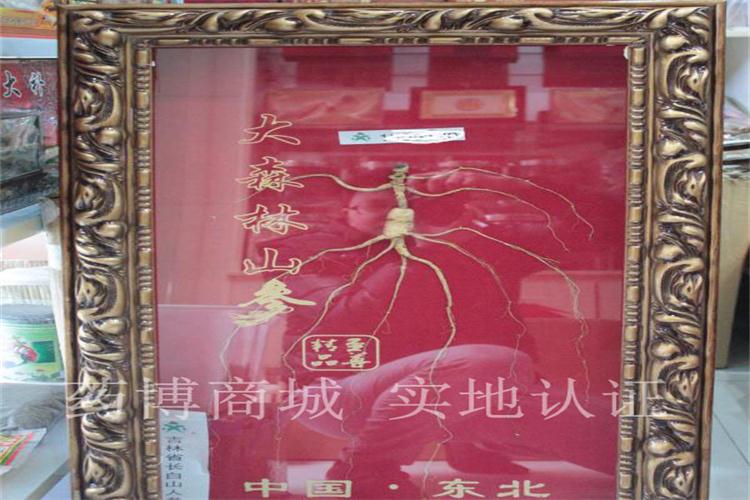 大森林山参
精品
至尊
药博商城 实地认证
吉林省长白山人参
中国·东北